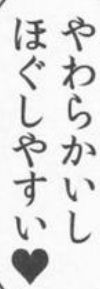 やわらかいし
ほぐしやすい♥